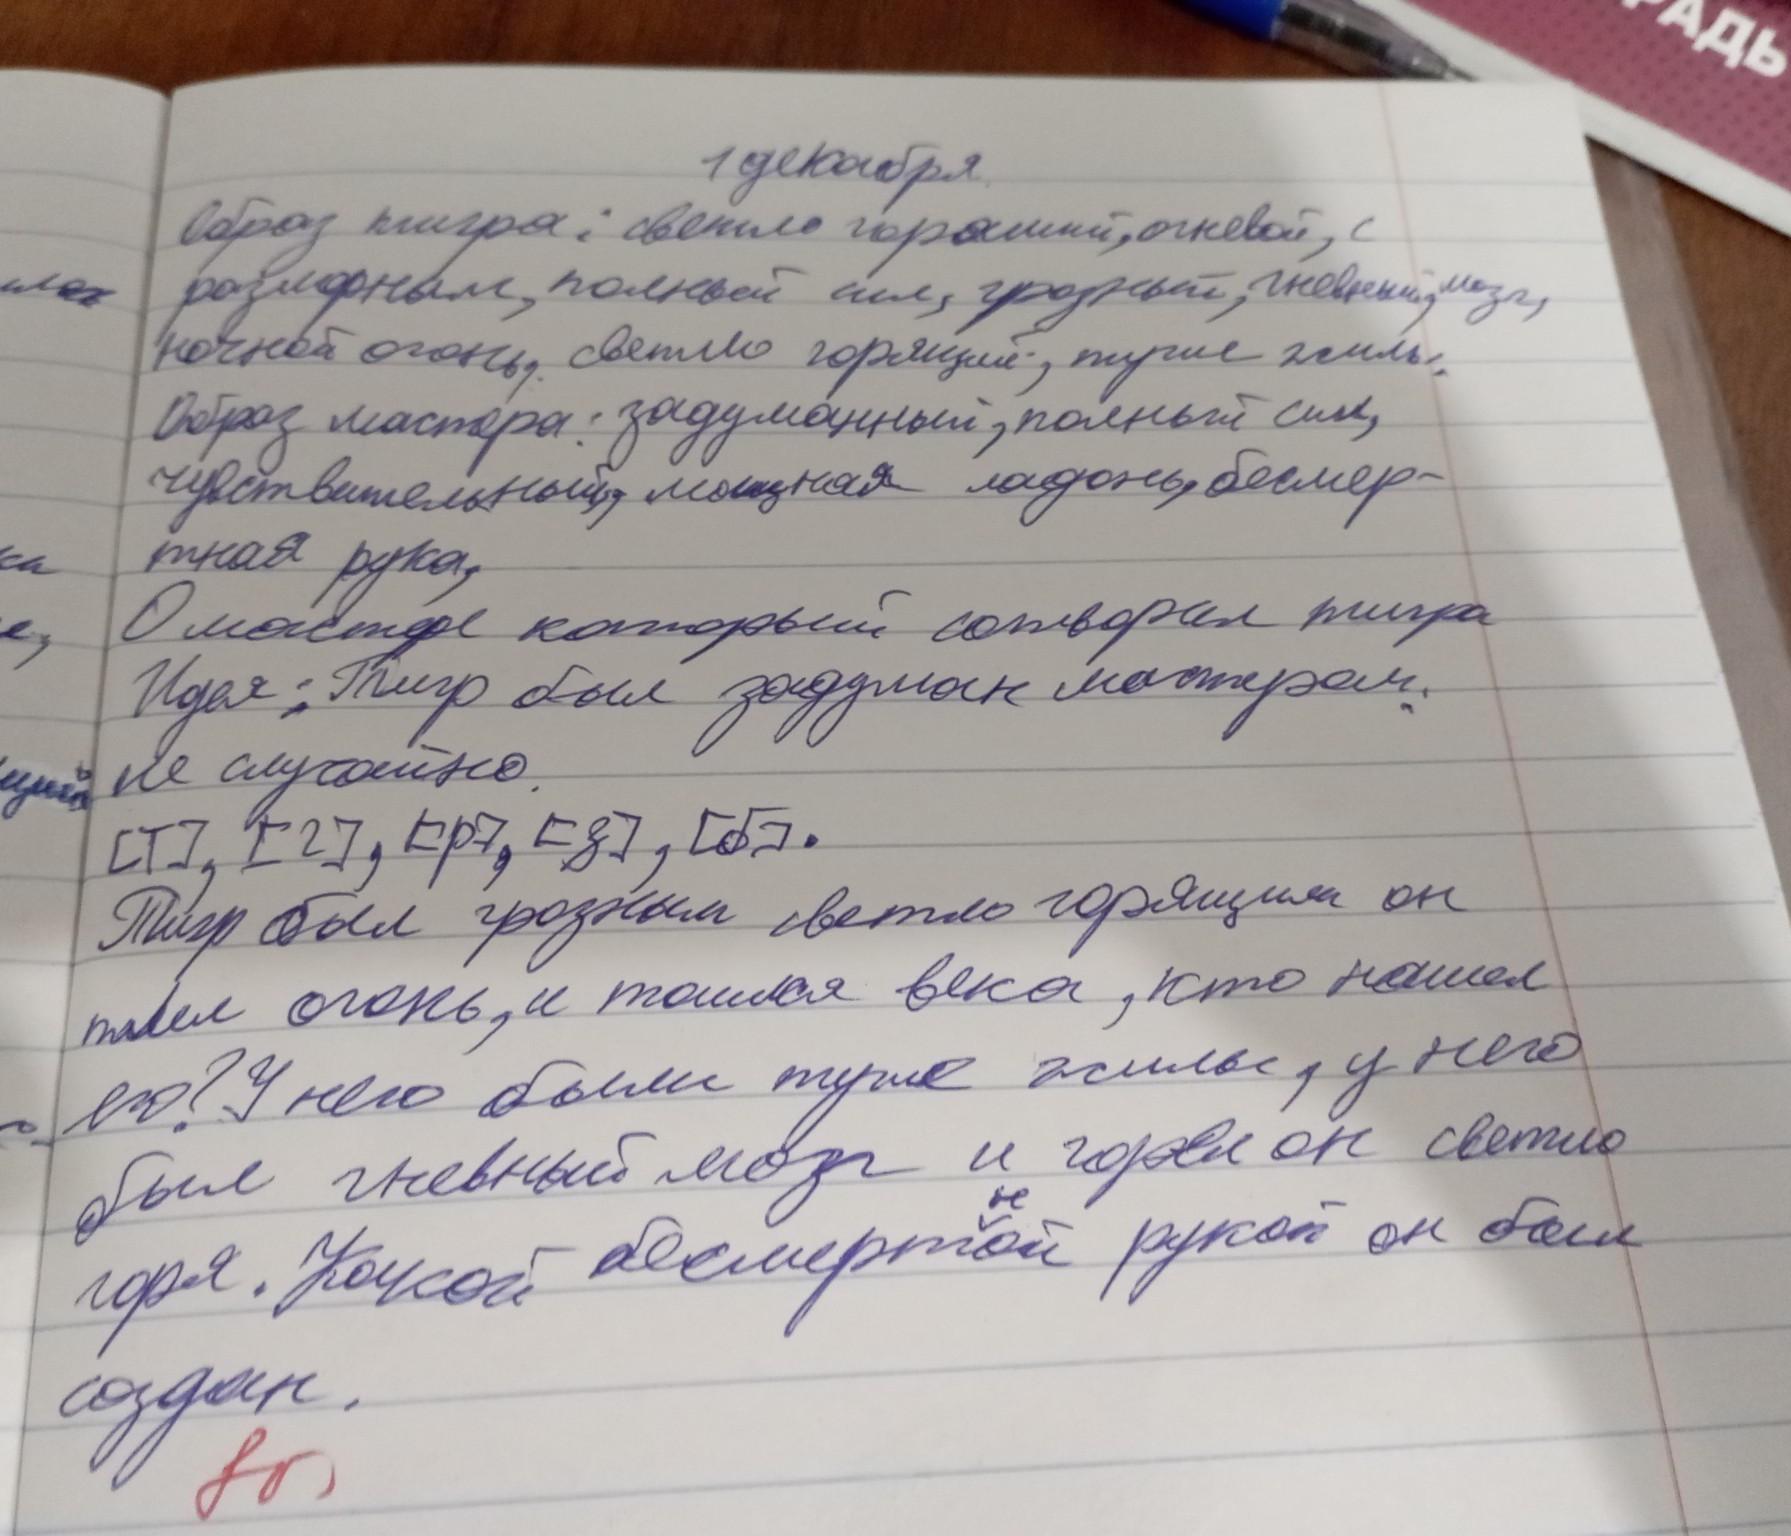 РАДЬ
1 декабря.
Образ тигра: светло горяший, огневой, с
размерным, полный сил, грозный, гневный, мозг,
ночной огонь, светло горящий, тугие жилы.
Образ мастера: задуманный, полный сил,
чувствительный, мощная ладонь, бесмер-
тная рука,
О мастере который сотворил тигра
Идея: Тигр был задуман мастером.
не случайно.
[Т], [г], [р], [з], [б].
Тигр был грозным светло горящим он
тлел огонь, и таился века, кто нашел
его? У него были тугие жилы, у него
был гневный мозг и горел он светло
горя. Какой бесмертной рукой он был
создан.